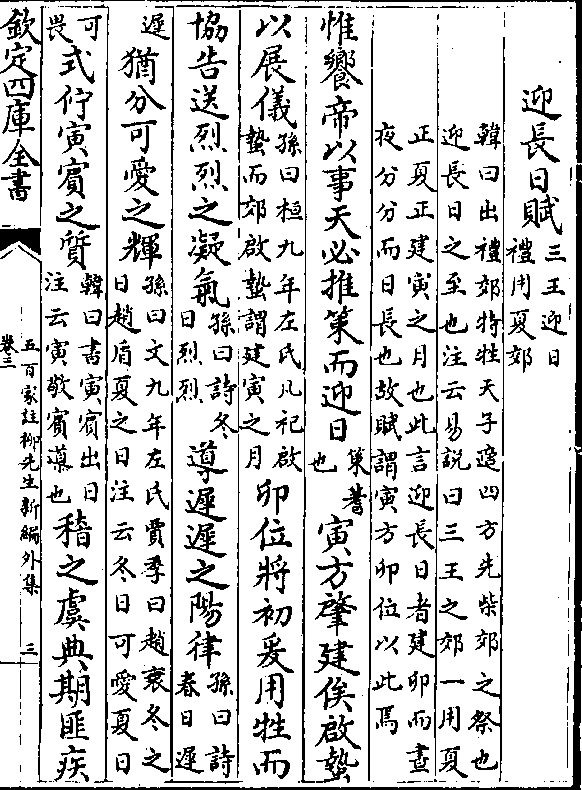 迎長日賦三王迎日
禮用夏郊
韓曰出禮郊特牲天子適四方先柴郊之祭也
迎長日之至也注云易說曰三王之郊一用夏
正夏正建寅之月也此言迎長日者建卯而晝
夜分分而日長也故賦謂寅方卯位以此焉
惟饗帝以事天必推策而迎日策蓍
也寅方肇建俟啟蟄
以展儀孫曰桓九年左氏凡祀啟
蟄而郊啟蟄謂建寅之月卯位將初爰用牲而
協告送烈烈之凝氣孫曰詩冬
日烈烈導遲遲之陽律孫曰詩
春日遲
遲猶分可愛之輝孫曰文九年左氏賈季曰趙衰冬之
日趙盾夏之日注云冬日可愛夏日
可
畏式佇寅賓之質韓曰書寅賓出日
注云寅敬賓導也稽之虞典期匪疾
欽定四庫全書
五百家註柳先生新編外集
卷三
三